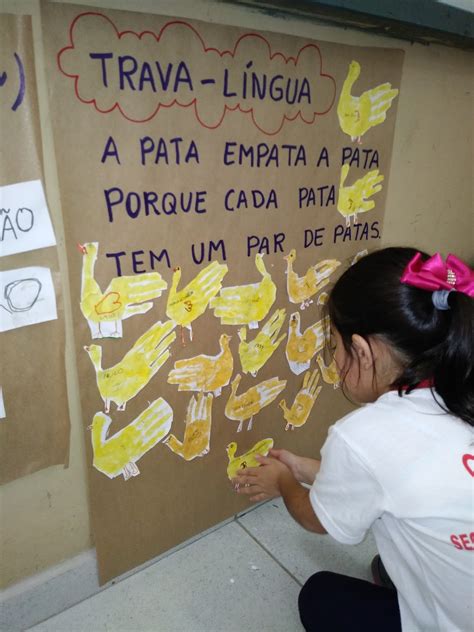 TRAVA-LÍNGUA
A PATA EMPATA A PATA
PORQUE CADA PATA
TEM UM PAR DE PATAS.
ÃO